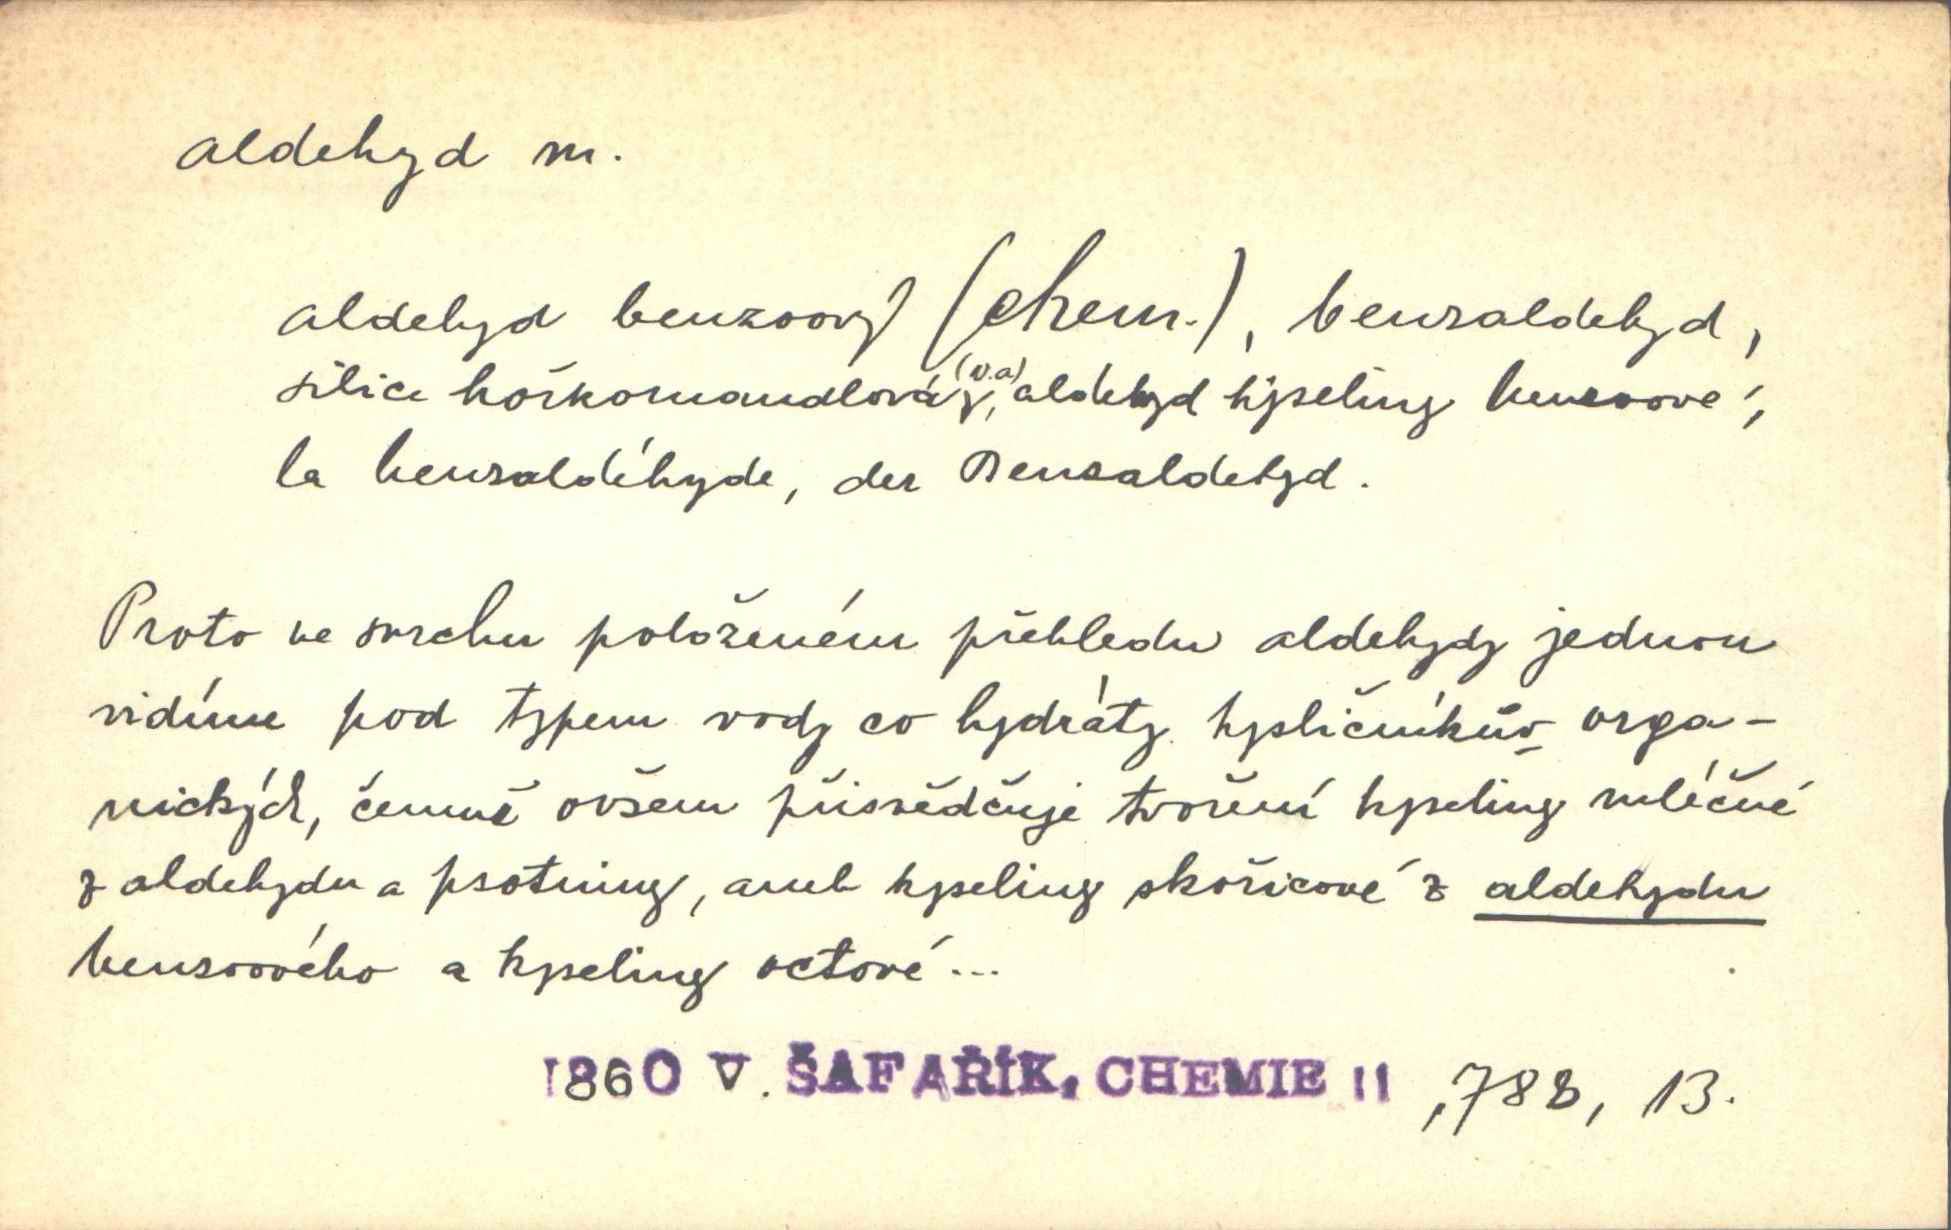 aldehyd m.
aldehyd benzoový (chem.), benzaldehyd,
silice hořkomandlová (v.a), aldehyd kyseliny benzoové,
la benzaldéhyde, der Benzaldehyd.
Proto ve svrchu položeném přehledu aldehydy jednou
vidíme pod typem vody co hydráty kysličníkův orga-
nických, čemuž ovšem přisvědčuje tvoření kyseliny mléčné
z aldehydu a psotniny, aneb kyseliny skořicové z aldehydu
benzoového a kyseliny octové...
1860 V. ŠAFAŘÍK, CHEMIE II, 788, 13.